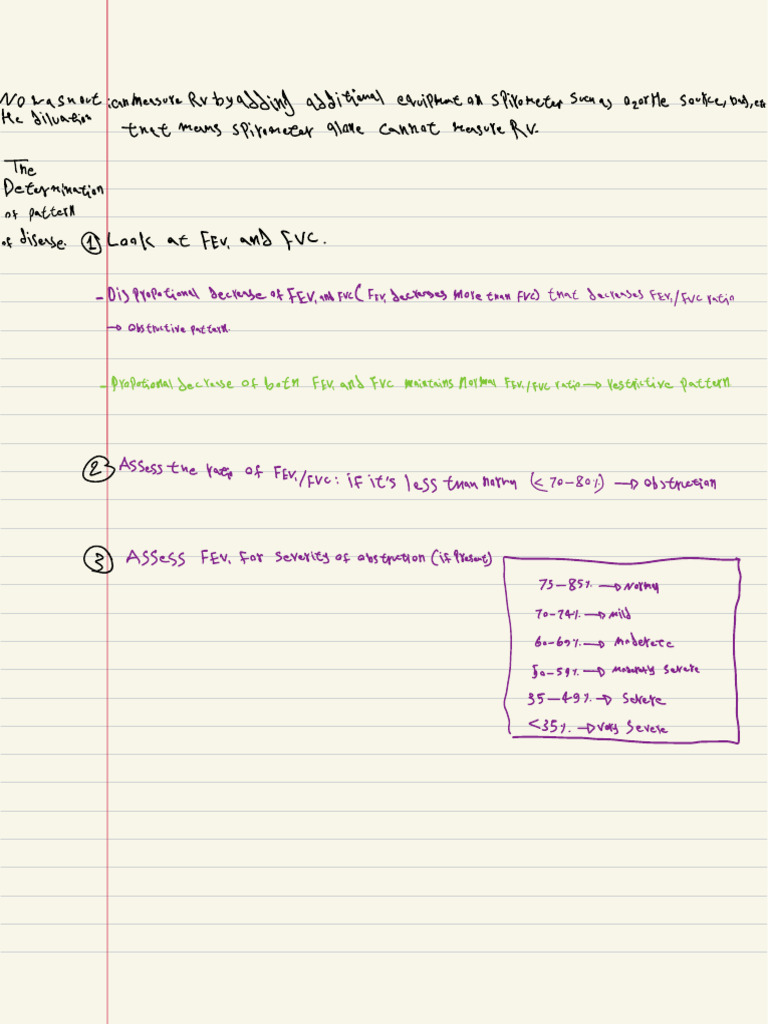 N2 washout : can measure RV by adding additional equipment on spirometer such as O2 or He source, bag, etc
He dilution
that means spirometer alone cannot measure RV.
The
Determination
of pattern
of disease. ① Look at FEV1 and FVC.
- Dispropotional decrease of FEV1 and FVC ( FEV1 decreases more than FVC) that decreases FEV1/FVC ratio
→ obstructive pattern.
- Propotional decrease of both FEV1 and FVC maintains normal FEV1/FVC ratio → restrictive pattern
② Assess the ratio of FEV1/FVC : if it's less than normal (< 70-80%) → obstruction
③ Assess FEV1 for severity of obstruction (if present)
75-85% → Normal
70-74% → mild
60-69% → moderate
50-59% → moderately severe
35-49% → severe
<35% → very severe